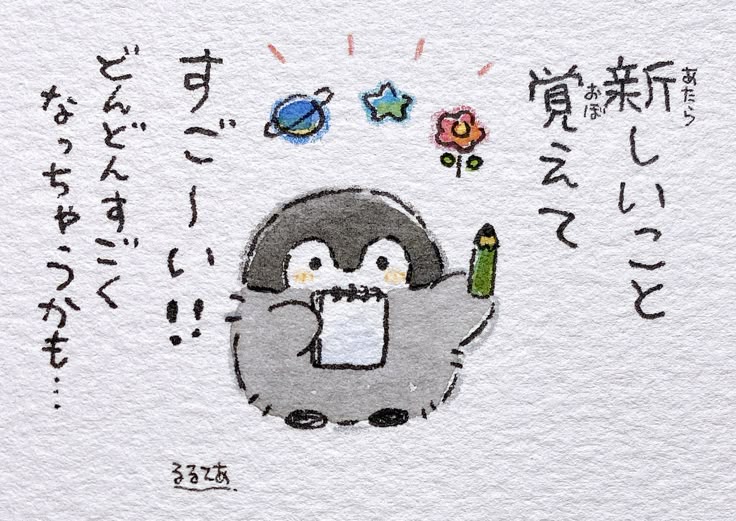 新しいこと
覚えて
すご〜い!!
どんどんすごく
なっちゃうかも…
るるてあ